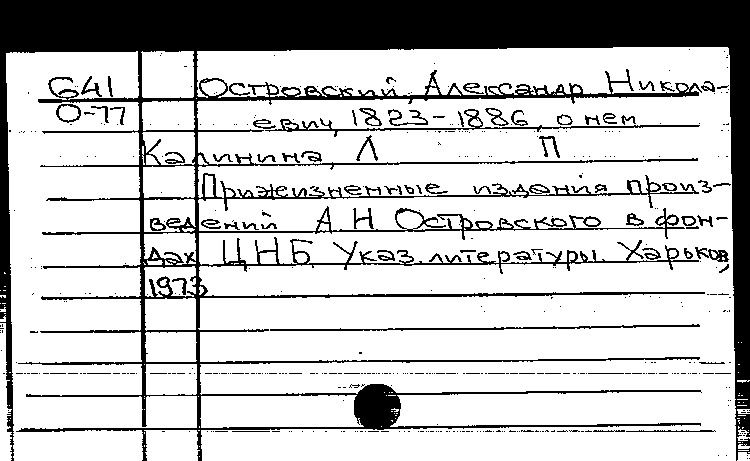 G41 Островский, Александр Никола-
О-77 евич, 1823-1886, о нем
Калинина, Л П
Прижизненные издания произ-
ведений А Н Островского в фон-
дах ЦНБ Указ. литературы. Харьков,
1973